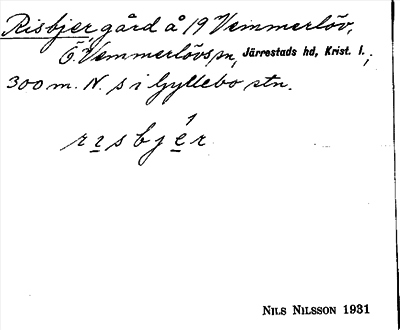 Risbjer, gård å 19 Vemmerlöv,
Ö. Vemmerlövs sn, Järrestads hd, Krist. l.,
300 m. N. s i Gyllebo stn.
rısbjér
NILS NILSSON 1931